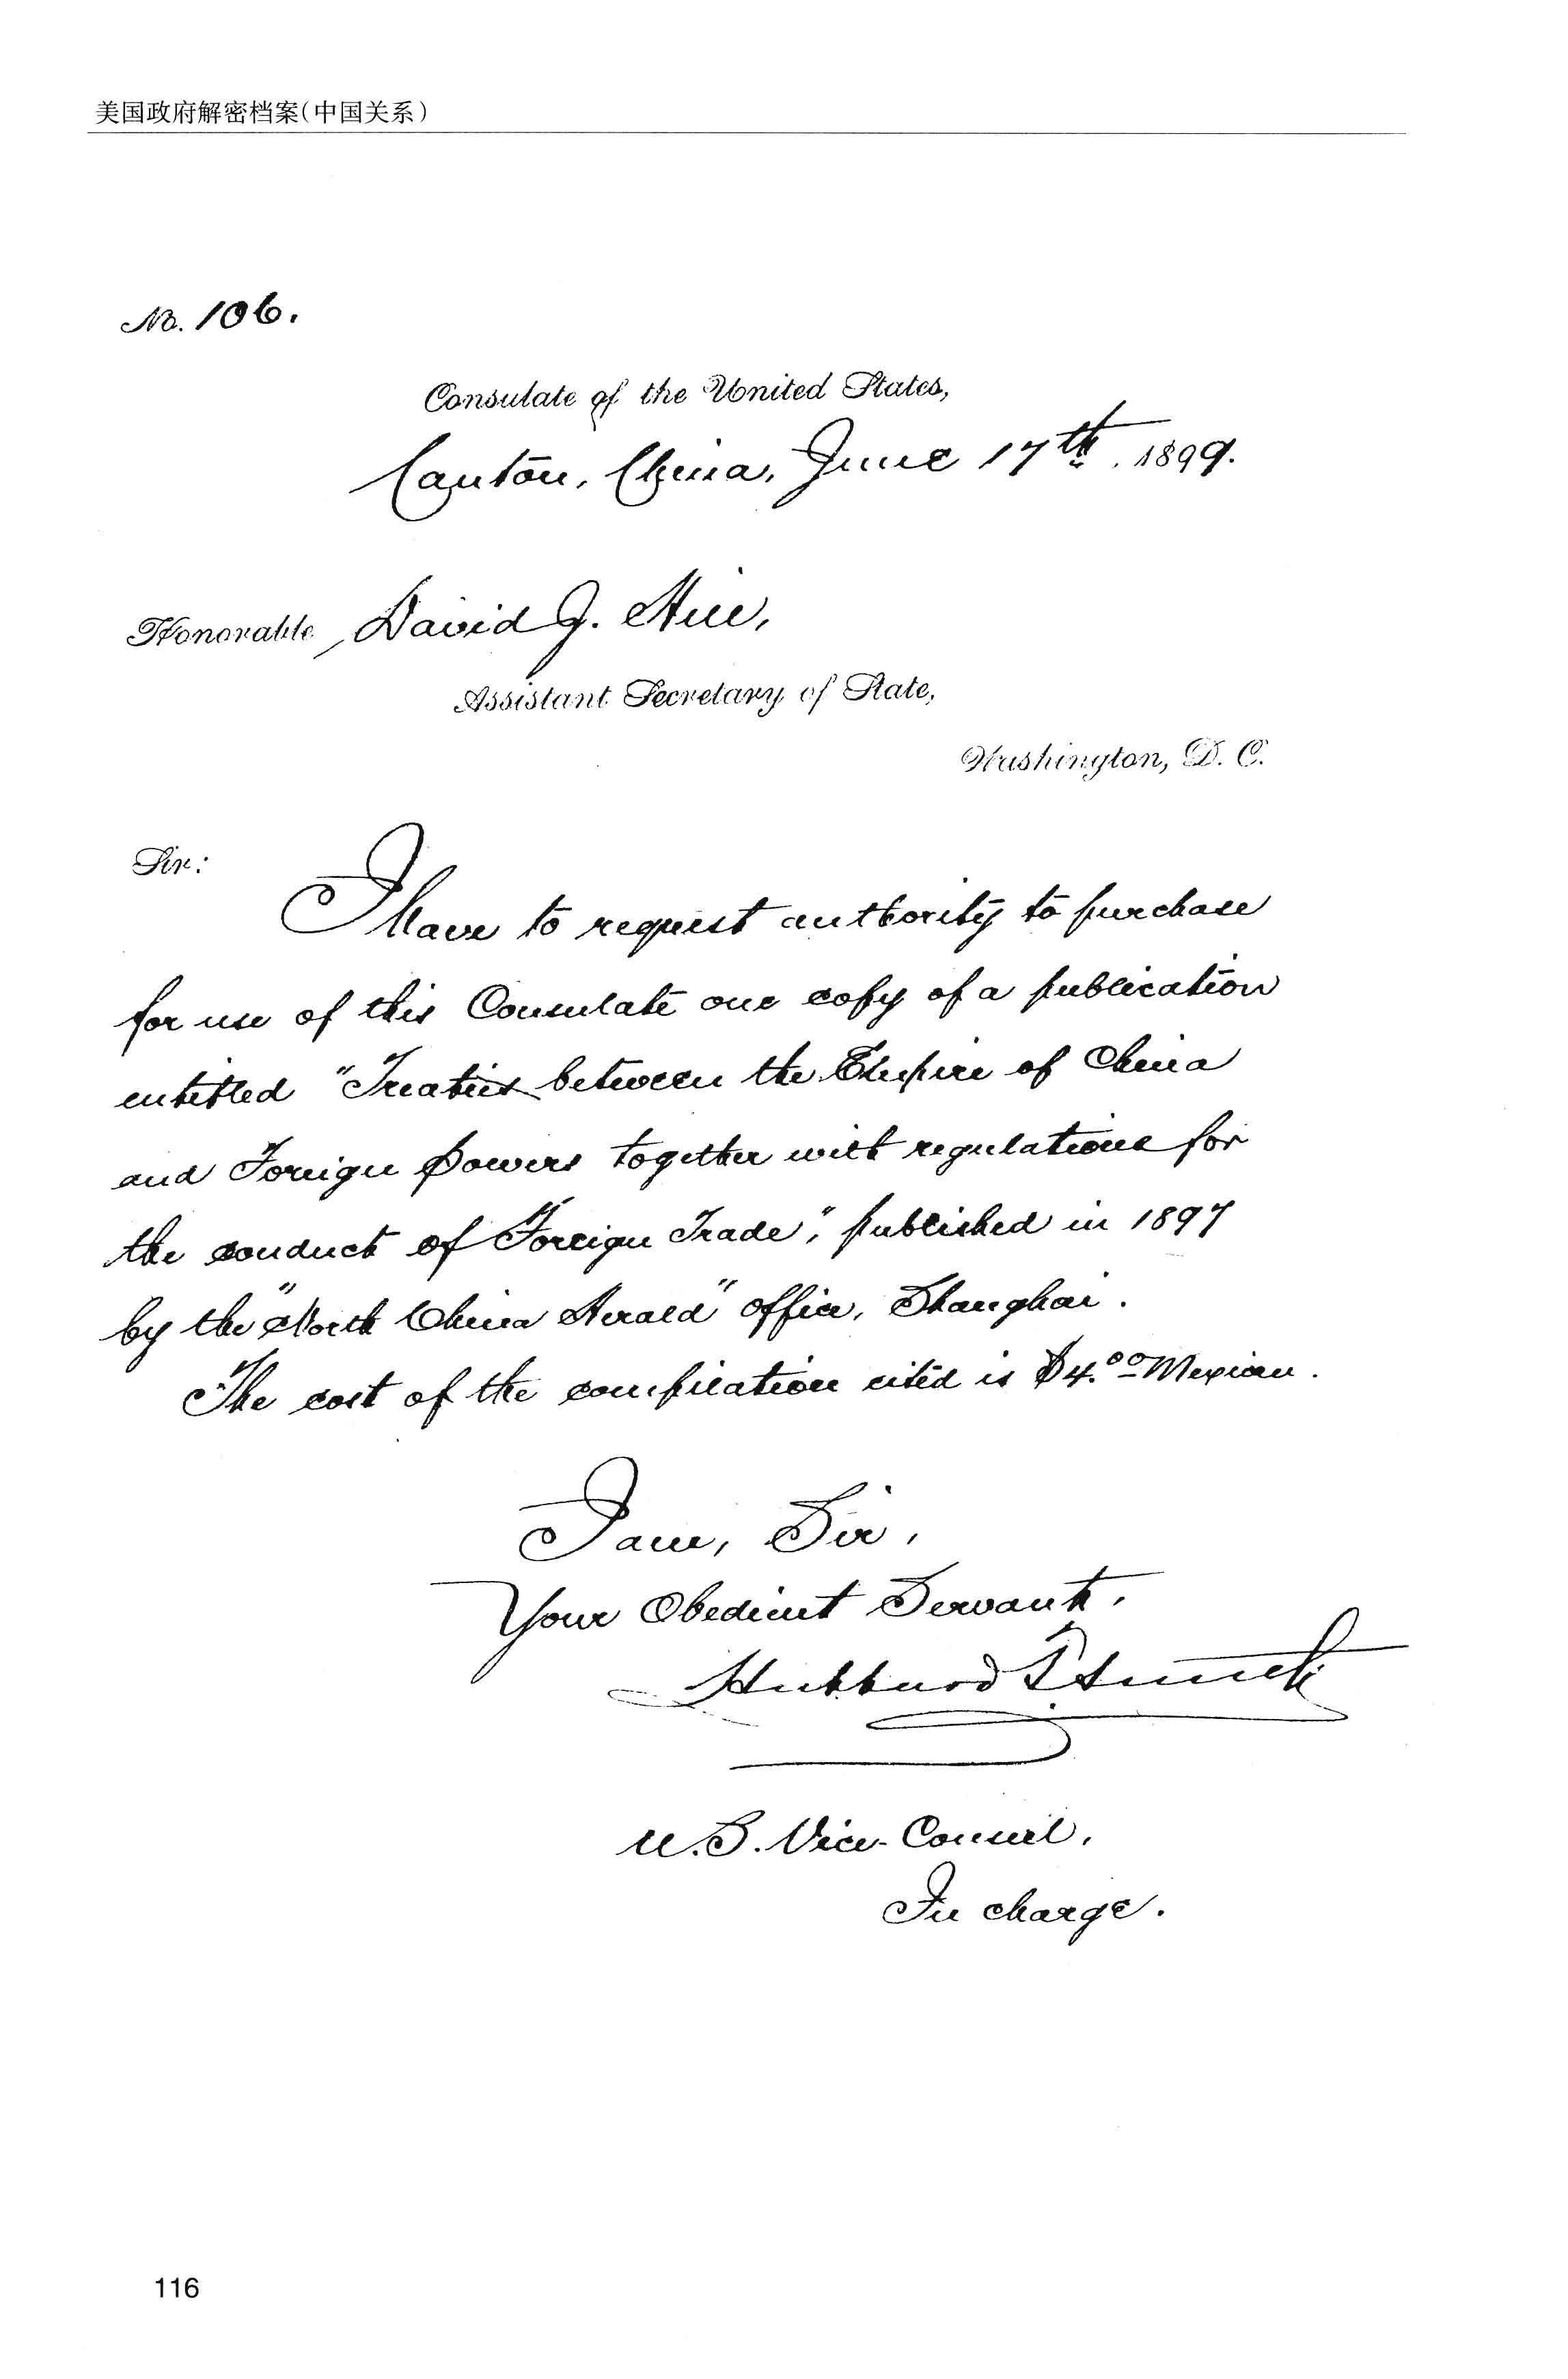 美国政府解密档案(中国关系)
No. 106.
Consulate of the United States,
Canton, China, June 17th, 1899.
Honorable David J. Hill,
Assistant Secretary of State,
Washington, D. C.
Sir:
I have to request authority to purchase
for use of this Consulate one copy of a publication
entitled "Treaties between the Empire of China
and Foreign Powers together with regulations for
the conduct of Foreign Trade", published in 1897
by the "North China Herald" office, Shanghai.
The cost of the compilation cited is $4.00 Mexican.
I am, Sir,
Your Obedient Servant,
Hubbard T. Smith
U.S. Vice-Consul,
In charge.
116